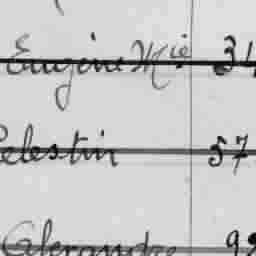 Eugène Mie 34
Celestin 57
Alexandre 92